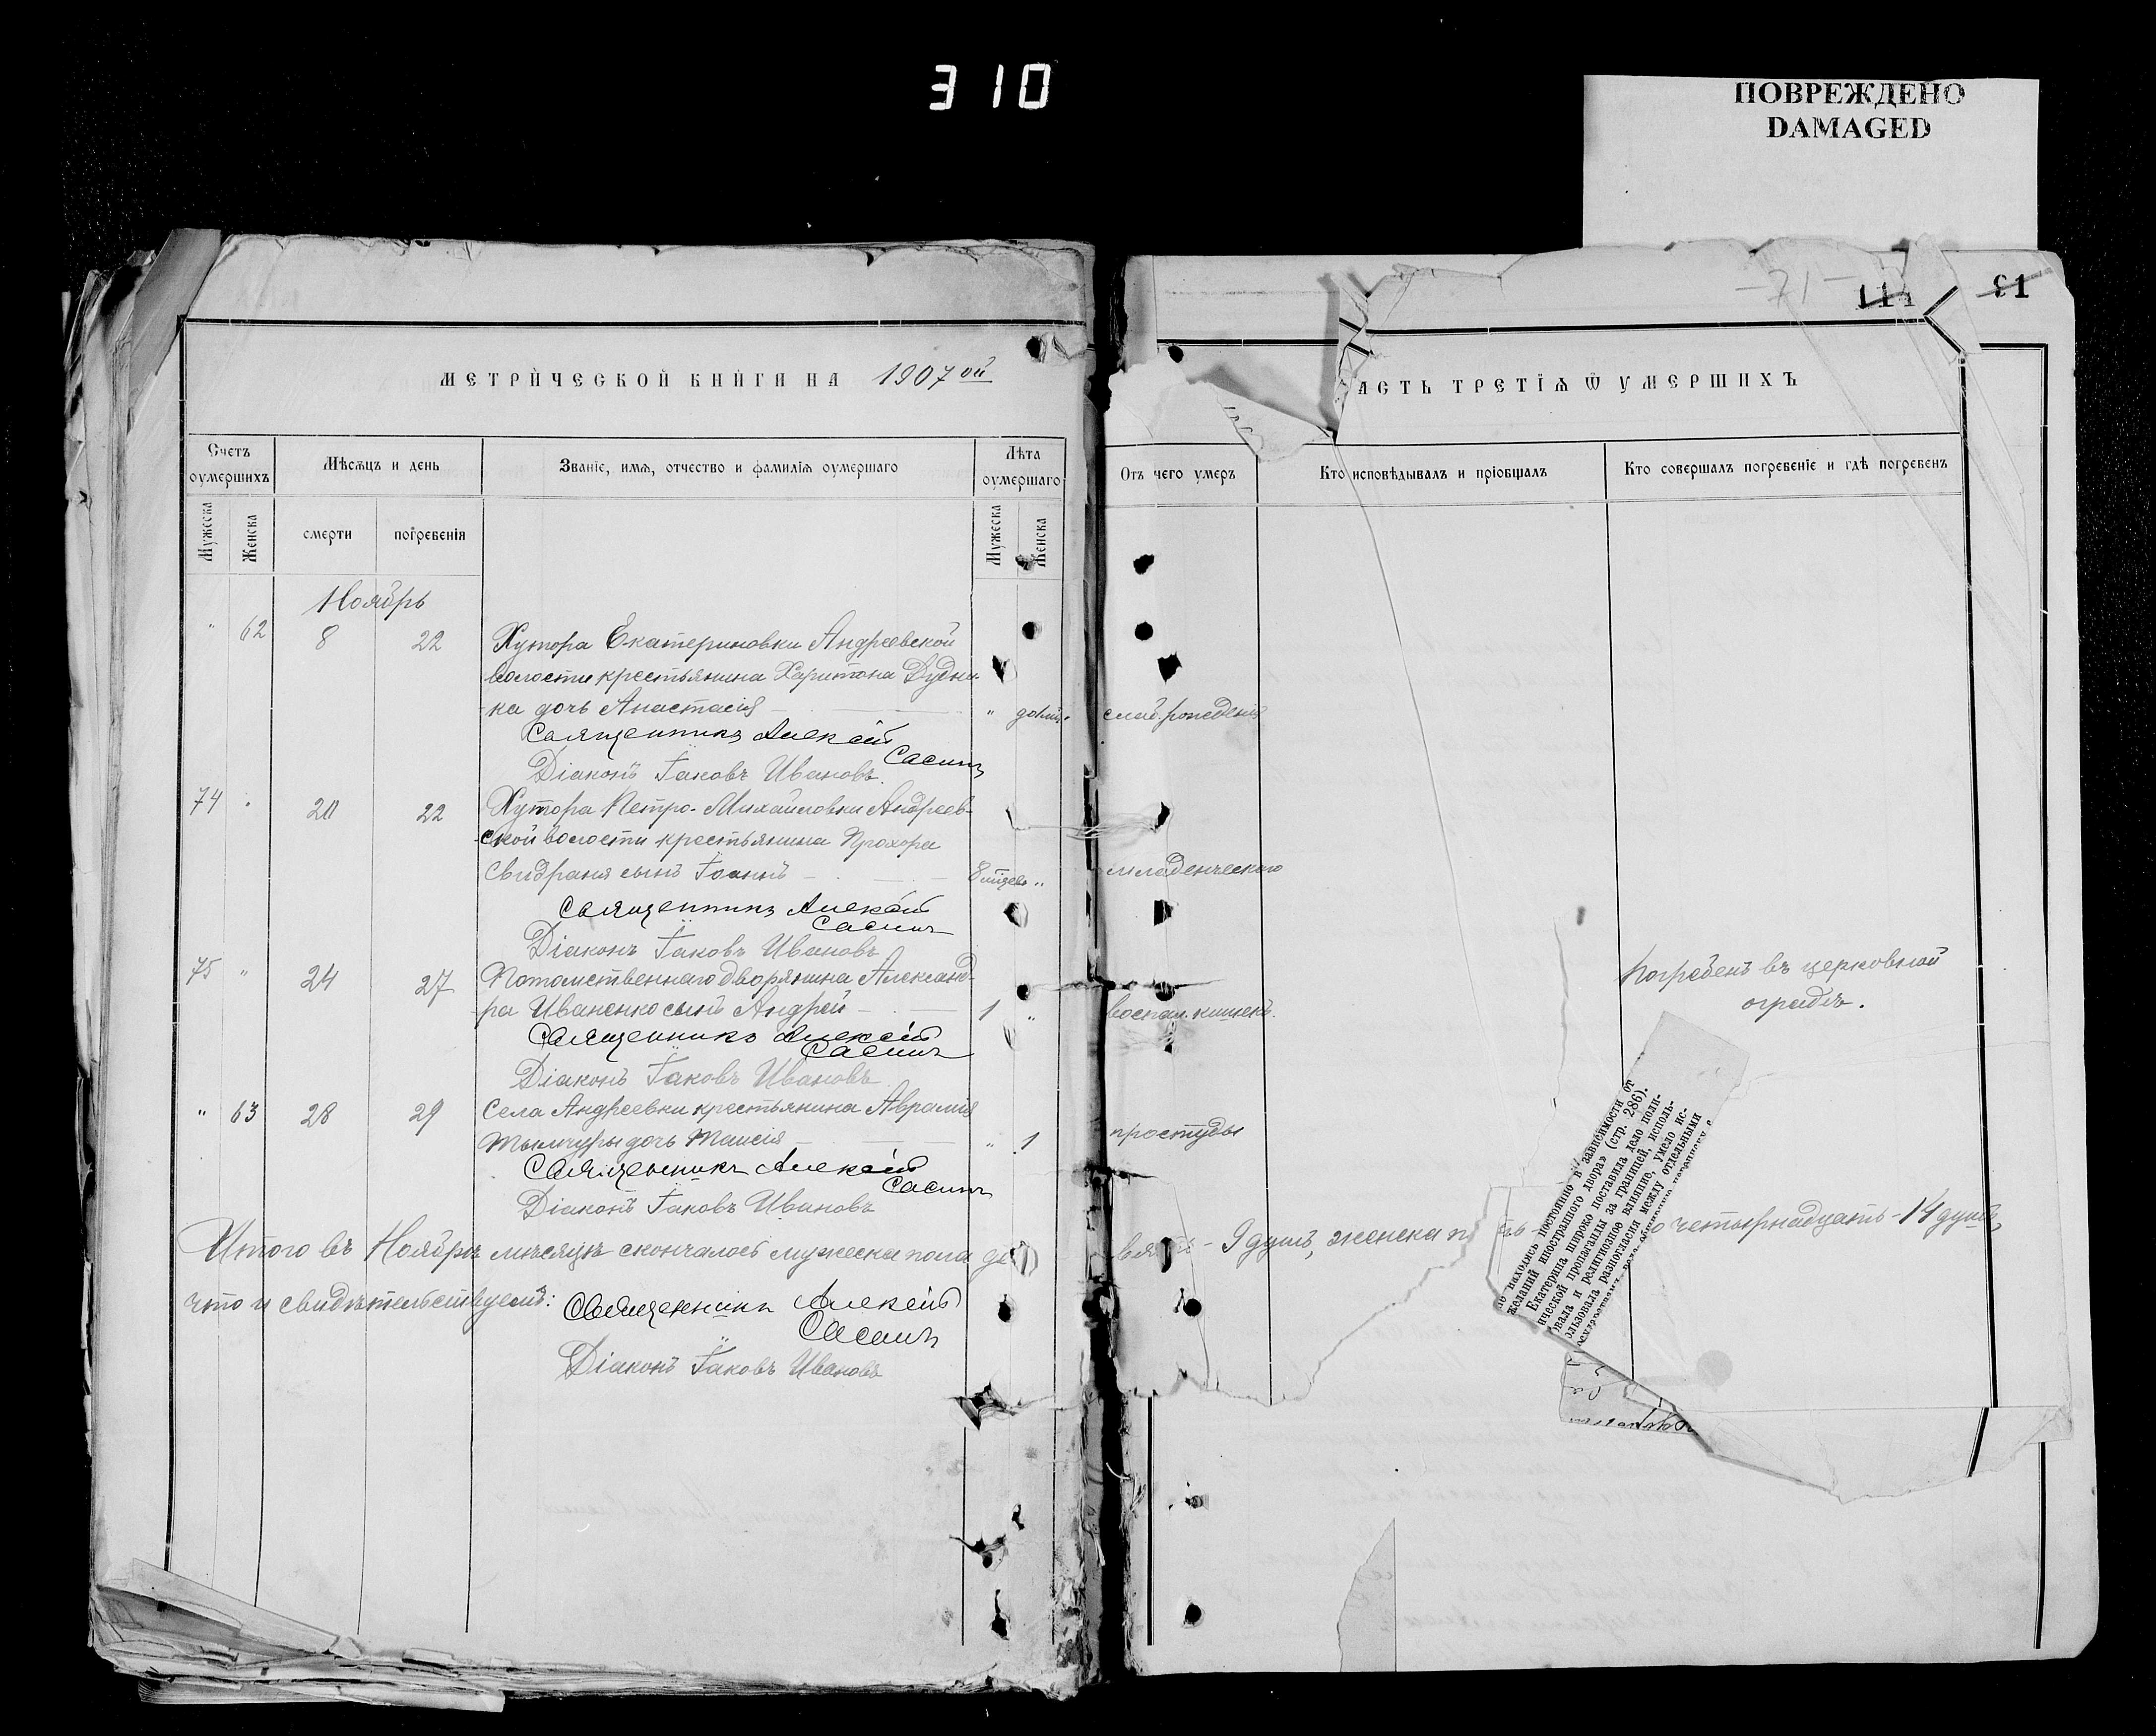 310
ПОВРЕЖДЕНО
DAMAGED
-71-
111
51
МЕТРИЧЕСКОЙ КНИГИ НА 1907 ой
АСТЬ ТРЕТІѦ Ѿ УМЕРШИХЪ
Счетъ оумершихъ
Мѣсѧцъ и день
Званіе, имѧ, отчество и фамилїѧ оумершаго
Лѣта оумершаго
Отъ чего умеръ
Кто исповѣдывалъ и прїобщалъ
Кто совершалъ погребенїе и гдѣ погребенъ
Мужеска
Женска
смерти
погребенїя
Мужеска
Женска
Ноябрь
" 62 8 22 Хутора Екатериновки Андреевской
волости крестьянина Харитона Дудни-
ка дочь Анастасія " слаб. рожденія
Священникъ Алексій
Сасинъ
Діаконъ Іаковъ Ивановъ.
74 " 20 22 Хутора Петро-Михайловки Андреев-
ской волости крестьянина Прохора
сынъ Іоаннъ 8 " младенческаго
Священникъ Алексій
Сасинъ
Діаконъ Іаковъ Ивановъ
75 " 24 27 Потомственнаго дворянина Александ-
ра Иваненко сынъ Андрей 1 " воспал. кишекъ.
Погребенъ въ церковной
оградѣ.
Священникъ Алексій
Сасинъ
Діаконъ Іаковъ Ивановъ
" 63 28 29 Села Андреевки крестьянина Аврамія
дочь Таисія " 1 простуды
Священникъ Алексій
Сасинъ
Діаконъ Іаковъ Ивановъ
Итого въ Ноябрѣ мѣсяцѣ скончалось мужеска пола де вять - 9 душъ, женска п ть четырнадцать - 14 душъ,
что и свидѣтельствуемъ: Священникъ Алексій
Сасинъ
Діаконъ Іаковъ Ивановъ
находясь постоянно в зависимости от
желаний иностранного двора» (стр. 286).
Екатерина широко поставила дело поли-
ической пропаганды за границей, исполь-
вала и религиозное влияние, умело ис-
льзовала разногласия между отдельными